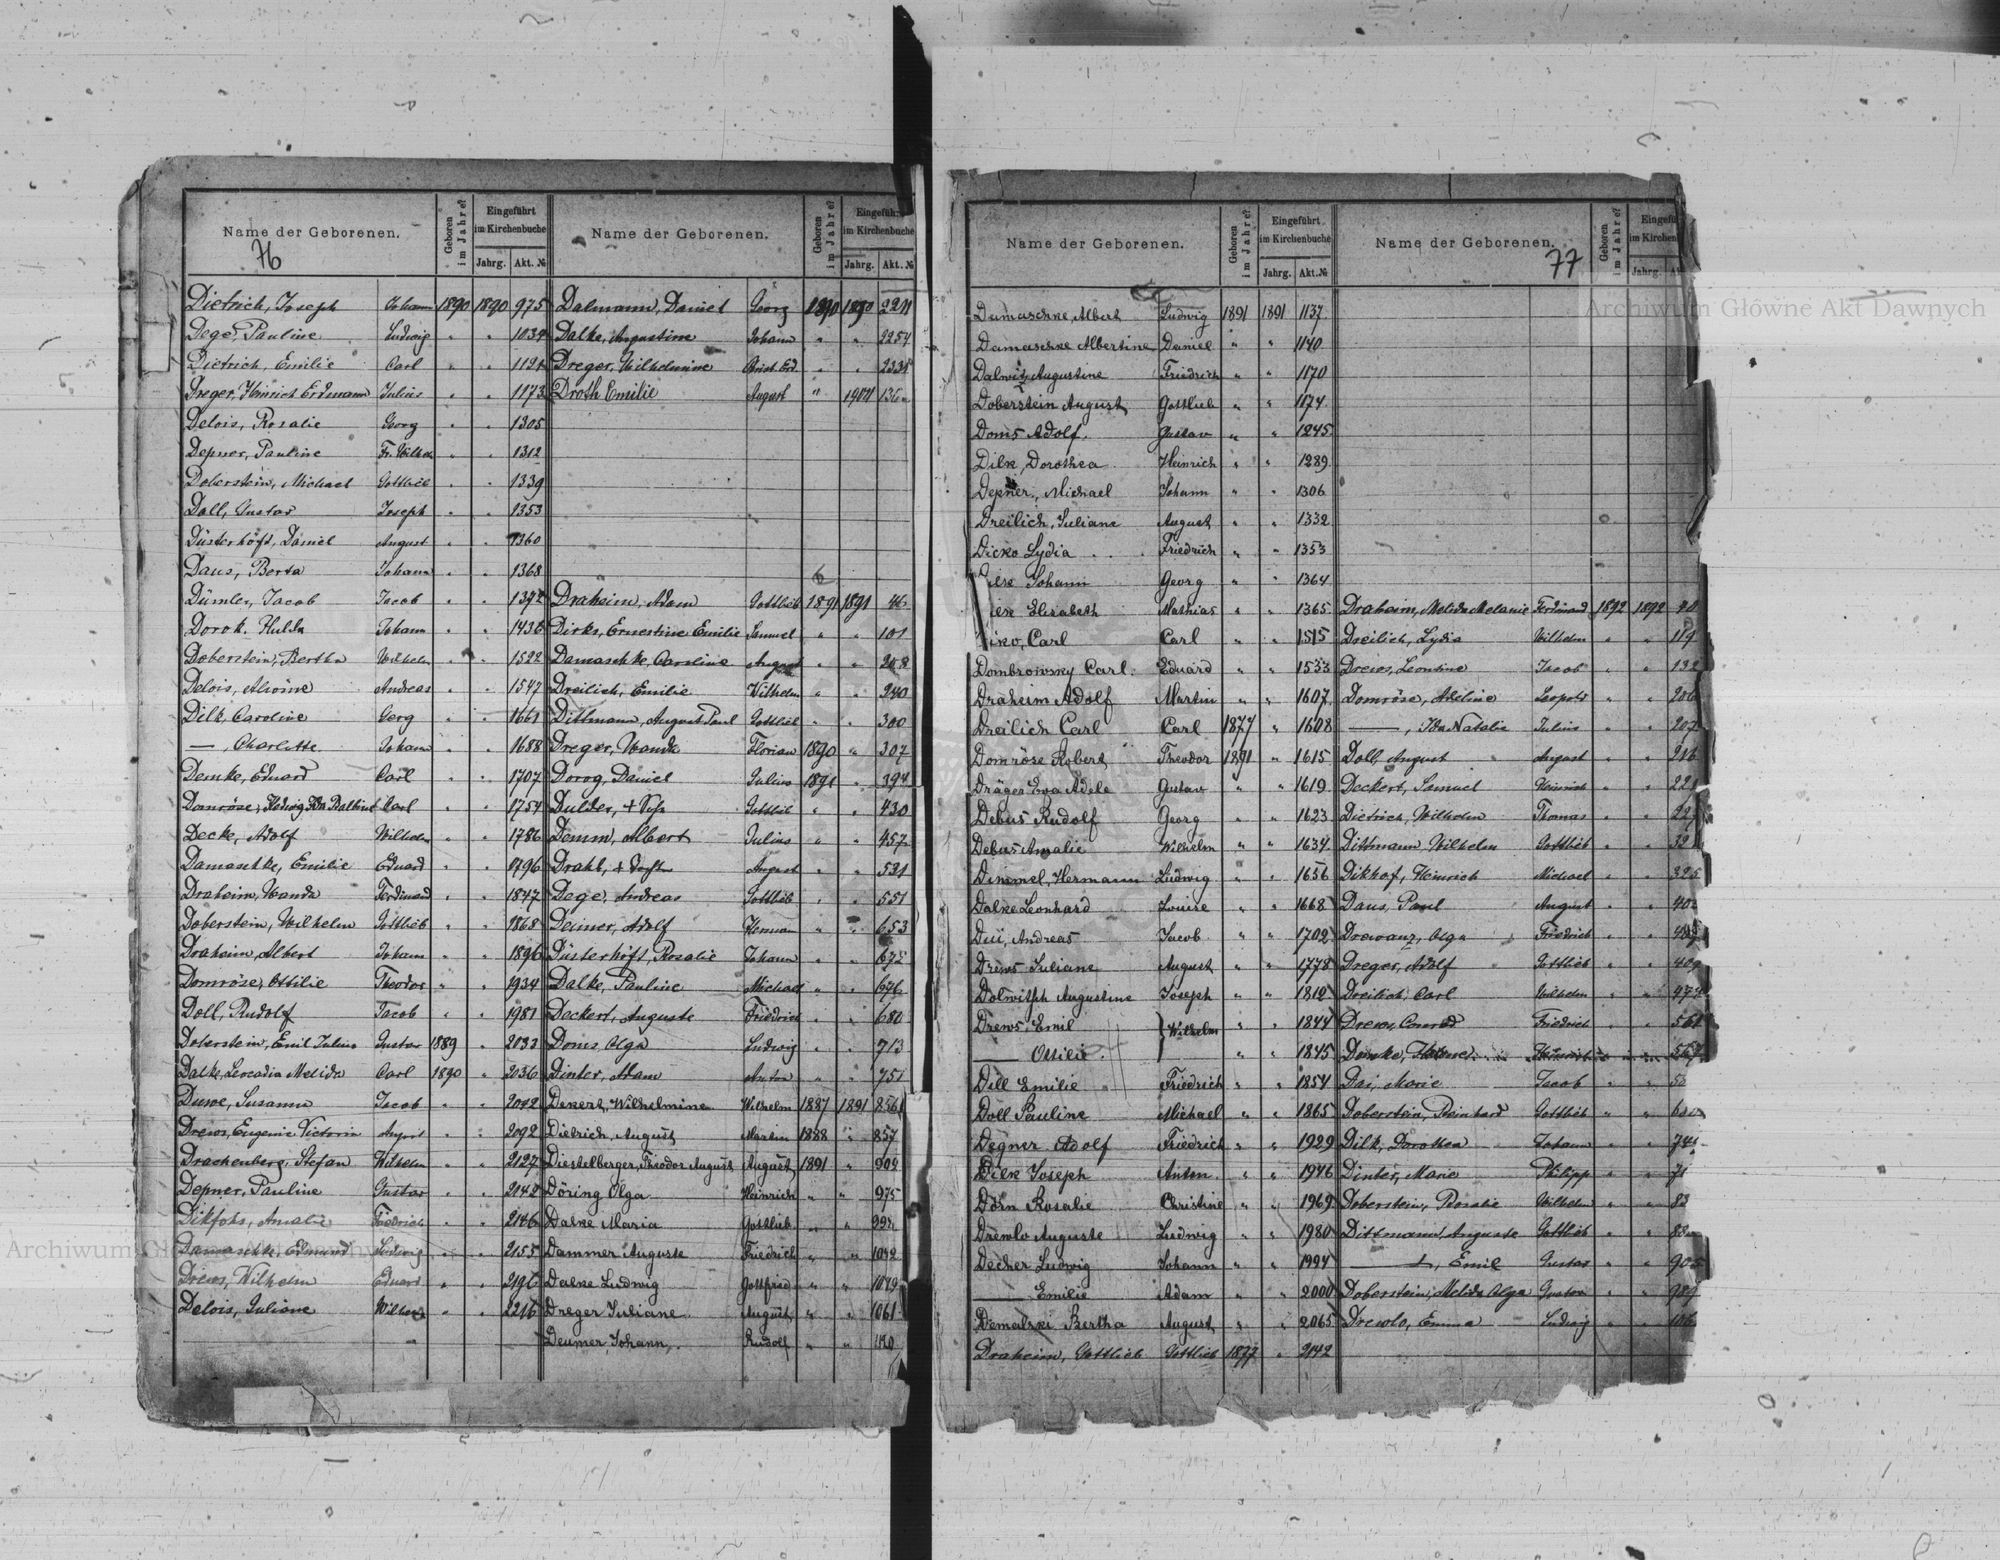 Name der Geborenen.
Geboren im Jahre
Eingeführt im Kirchenbuche
Jahrg. Akt. №
Name der Geborenen.
Geboren im Jahre
Eingeführt im Kirchenbuche
Jahrg. Akt. №
76
Dietrich, Joseph Johann 1890 1890 975
Dege, Pauline Ludwig " " 1034
Dietrich, Emilie Carl " " 1121
Dreger, Heinrich Erdmann Julius " " 1173
Delois, Rosalie Georg " " 1305
Depner, Pauline Fr. Wilhelm " " 1312
Doberstein, Michael Gottlieb " " 1339
Dall, Gustav Joseph " " 1353
Düsterhöft, Daniel August " " 1360
Daus, Berta Johann " " 1368
Dümler, Jacob Jacob " " 1392
Dorok, Hulda Johann " " 1436
Doberstein, Bertha Wilhelm " " 1522
Delois, Alwine Andreas " " 1547
Dilk, Caroline Georg " " 1661
—, Charlotte Johann " " 1688
Demke, Eduard Carl " " 1707
Domröse, Hedwig Ida Balbine Karl " " 1754
Decke, Adolf Wilhelm " " 1786
Damaschke, Emilie Eduard " " 1796
Draheim, Wanda Ferdinand " " 1847
Doberstein, Wilhelm Gottlieb " " 1868
Draheim, Albert Johann " " 1896
Domröse, Ottilie Theodor " " 1934
Doll, Rudolf Jacob " " 1981
Doberstein, Emil Julius Gustav 1889 " 2033
Dalke, Leocadia Melida Carl 1890 " 2036
Duwe, Susanna Jacob " " 2042
Drews, Eugenie Victoria August " " 2092
Drachenberg, Stefan Wilhelm " " 2127
Depner, Pauline Gustav " " 2142
Dikfohs, Amalie Friedrich " " 2146
Damaschk, Edmund Ludwig " " 2155
Drews, Wilhelm Eduard " " 2196
Delois, Juliane Wilhelm " " 2216
Dalmann, Daniel Georg 1890 1890 2211
Dalke, Augustine Johann " " 2254
Dreger, Wilhelmine Christ. Erd. " "
Droth Emilie August " 1904
Draheim, Adam Gottlieb 1891 1891 46
Dirks, Ernestine Emilie Samuel " " 101
Damaschke, Caroline August " " 208
Dreilich, Emilie Wilhelm " " 240
Dittmann, August Paul Gottlieb " " 300
Dreger, Wanda Florian 1890 " 307
Dorog, Daniel Julius 1891 " 394
Gottlieb " " 430
Demm, Albert Julius " " 457
August " " 521
Dege, Andreas Gottlieb " " 551
Deimer, Adolf Herman " " 653
Düsterhöft, Rosalie Johann " " 672
Dalke, Pauline Michael " " 676
Deckert, Auguste Friedrich " " 680
Doms, Olga Ludwig " " 713
Dinter, Adam Anton " " 751
Dekert, Wilhelmine Wilhelm 1887 1891 856
Dietrich, August Martin 1888 " 857
Diestelberger, Theodor August August 1891 " 902
Döring Olga Heinrich " " 975
Dalke Maria Gottlieb " "
Dammer Auguste Friedrich " " 1042
Dalke Ludwig Gottfried " " 1049
Dreger Juliane August " " 1061
Deumer Johann, Rudolf " "
Name der Geborenen.
Geboren im Jahre
Eingeführt im Kirchenbuche
Jahrg. Akt. №
Name der Geborenen.
Geboren im Jahre
Jahrg.
77
Damaschke, Albert Ludwig 1891 1891 1137
Damaschke Albertine Daniel " " 1140
Dalwitz Augustine Friedrich " " 1170
Doberstein August Gottlieb " " 1174
Doms Adolf. Gustav " " 1245
Dilk, Dorothea Heinrich " " 1289
Depner, Michael Johann " " 1306
Dreilich, Juliane August " " 1332
Dicko Lydia Friedrich " " 1353
Johann Georg " " 1364
Elisabeth Mathias " " 1365
Carl Carl " " 1515
Dombrowsky Carl. Eduard " " 1533
Draheim Adolf Martin " " 1607
Dreilich Carl Carl 1877 " 1608
Domröse Robert Theodor 1891 " 1615
Dräger Eva Adele Gustav " " 1619
Debus Rudolf Georg " " 1623
Debus Amalie Wilhelm " " 1634
Dimmel, Hermann Ludwig " " 1656
Dalke Leonhard Louise " " 1668
Dui, Andreas Jacob " " 1702
Drews Juliane August " " 1778
Dolwitsh Augustine Joseph " " 1812
Drews Emil Wilhelm " " 1844
— Ottilie " " 1845
Dill Emilie Friedrich " " 1854
Doll Pauline Michael " " 1865
Degner Adolf Friedrich " " 1929
Dilk Joseph Anton " " 1946
Dörn Rosalie Christine " " 1969
Drewlo Auguste Ludwig " " 1980
Decher Ludwig Johann " " 1994
— Emilie Adam " " 2000
Demalski Bertha August " " 2065
Draheim, Gottlieb Gottlieb 1877 " 2142
Draheim, Melida Melanie Ferdinand 1892 1892
Dreilich, Lydia Wilhelm " " 119
Drews, Leontine Jacob " " 132
Domröse, Adeline Leopold " " 206
—, Ida Natalie Julius " " 207
Doll, August August " " 216
Deckert, Samuel Heinrich " " 221
Dietrich, Wilhelm Thomas " " 227
Dittmann, Wilhelm Gottlieb " "
Dikhof, Heinrich Michael " " 325
Daus, Paul August " "
Drewanz, Olga Friedrich " "
Dreger, Adolf Gottlieb " " 409
Dreilich, Carl Wilhelm " "
Drews, Conrad Friedrich " " 561
Demke, " " 567
Dai, Marie Jacob " "
Doberstein, Reinhard Gottlieb " "
Dilk, Dorothea Johann " "
Dinter, Marie Philipp " "
Doberstein, Rosalie Wilhelm " "
Dittmann, Auguste Gottlieb " "
—, Emil Gustav " " 905
Doberstein, Melida Olga Gustav " " 989
Drewlo, Emma Ludwig " "
Archiwum Główne Akt Dawnych
Archiwum Główne Akt Dawnych